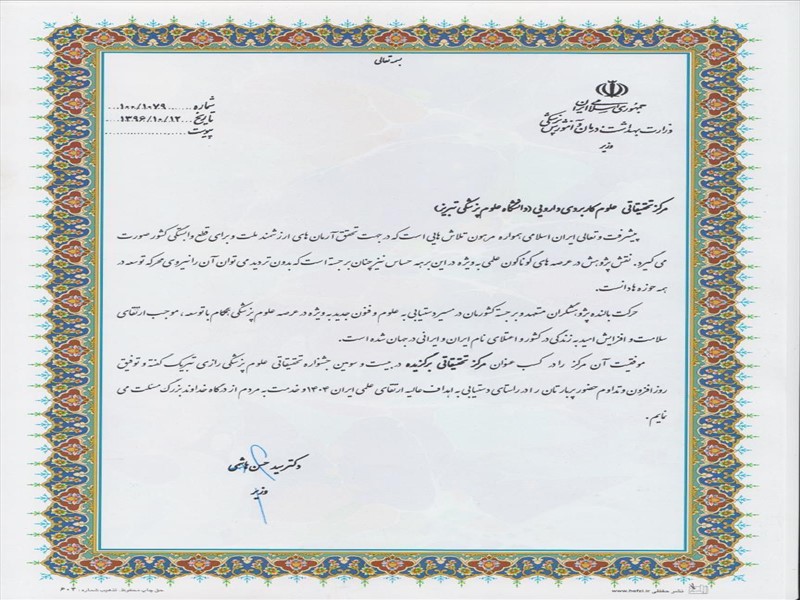 بسمه تعالی
جمهوری اسلامی ایران
وزارت بهداشت، درمان و آموزش پزشکی
وزیر
شماره ۱۰۰/۱۰۷۹
تاریخ ۱۳۹۶/۱۰/۱۲
پیوست
مرکز تحقیقاتی علوم کاربردی دارویی (دانشگاه علوم پزشکی تبریز)
پیشرفت و تعالی ایران اسلامی همواره مرهون تلاش هایی است که در جهت تحقق آرمان های ارزشمند ملت و برای قطع وابستگی کشور صورت
می گیرد. نقش پژوهش در عرصه های گوناگون علمی به ویژه در این برهه حساس نیز چنان برجسته است که بدون تردید می توان آن را نیروی محرکه توسعه در
همه حوزه ها دانست.
حرکت بالنده پژوهشگران متعهد و برجسته کشورمان در مسیر دستیابی به علوم و فنون جدید به ویژه در عرصه علوم پزشکی همگام با توسعه، موجب ارتقای
سلامت و افزایش امید به زندگی در کشور و اعتلای نام ایران و ایرانی در جهان شده است.
موفقیت آن مرکز را در کسب عنوان مرکز تحقیقاتی برگزیده در بیست و سومین جشنواره تحقیقاتی علوم پزشکی رازی تبریک گفته و توفیق
روزافزون و تداوم حضور پربارتان را در راستای دستیابی به اهداف عالیه ارتقای علمی ایران ۱۴۰۴ و خدمت به مردم از درگاه خداوند بزرگ مسئلت می
نمایم.
دکتر سید حسن هاشمی
وزیر
حق چاپ محفوظ. تذهیب شماره: ۶۰۲
www.hafezi.ir نشر حافظی